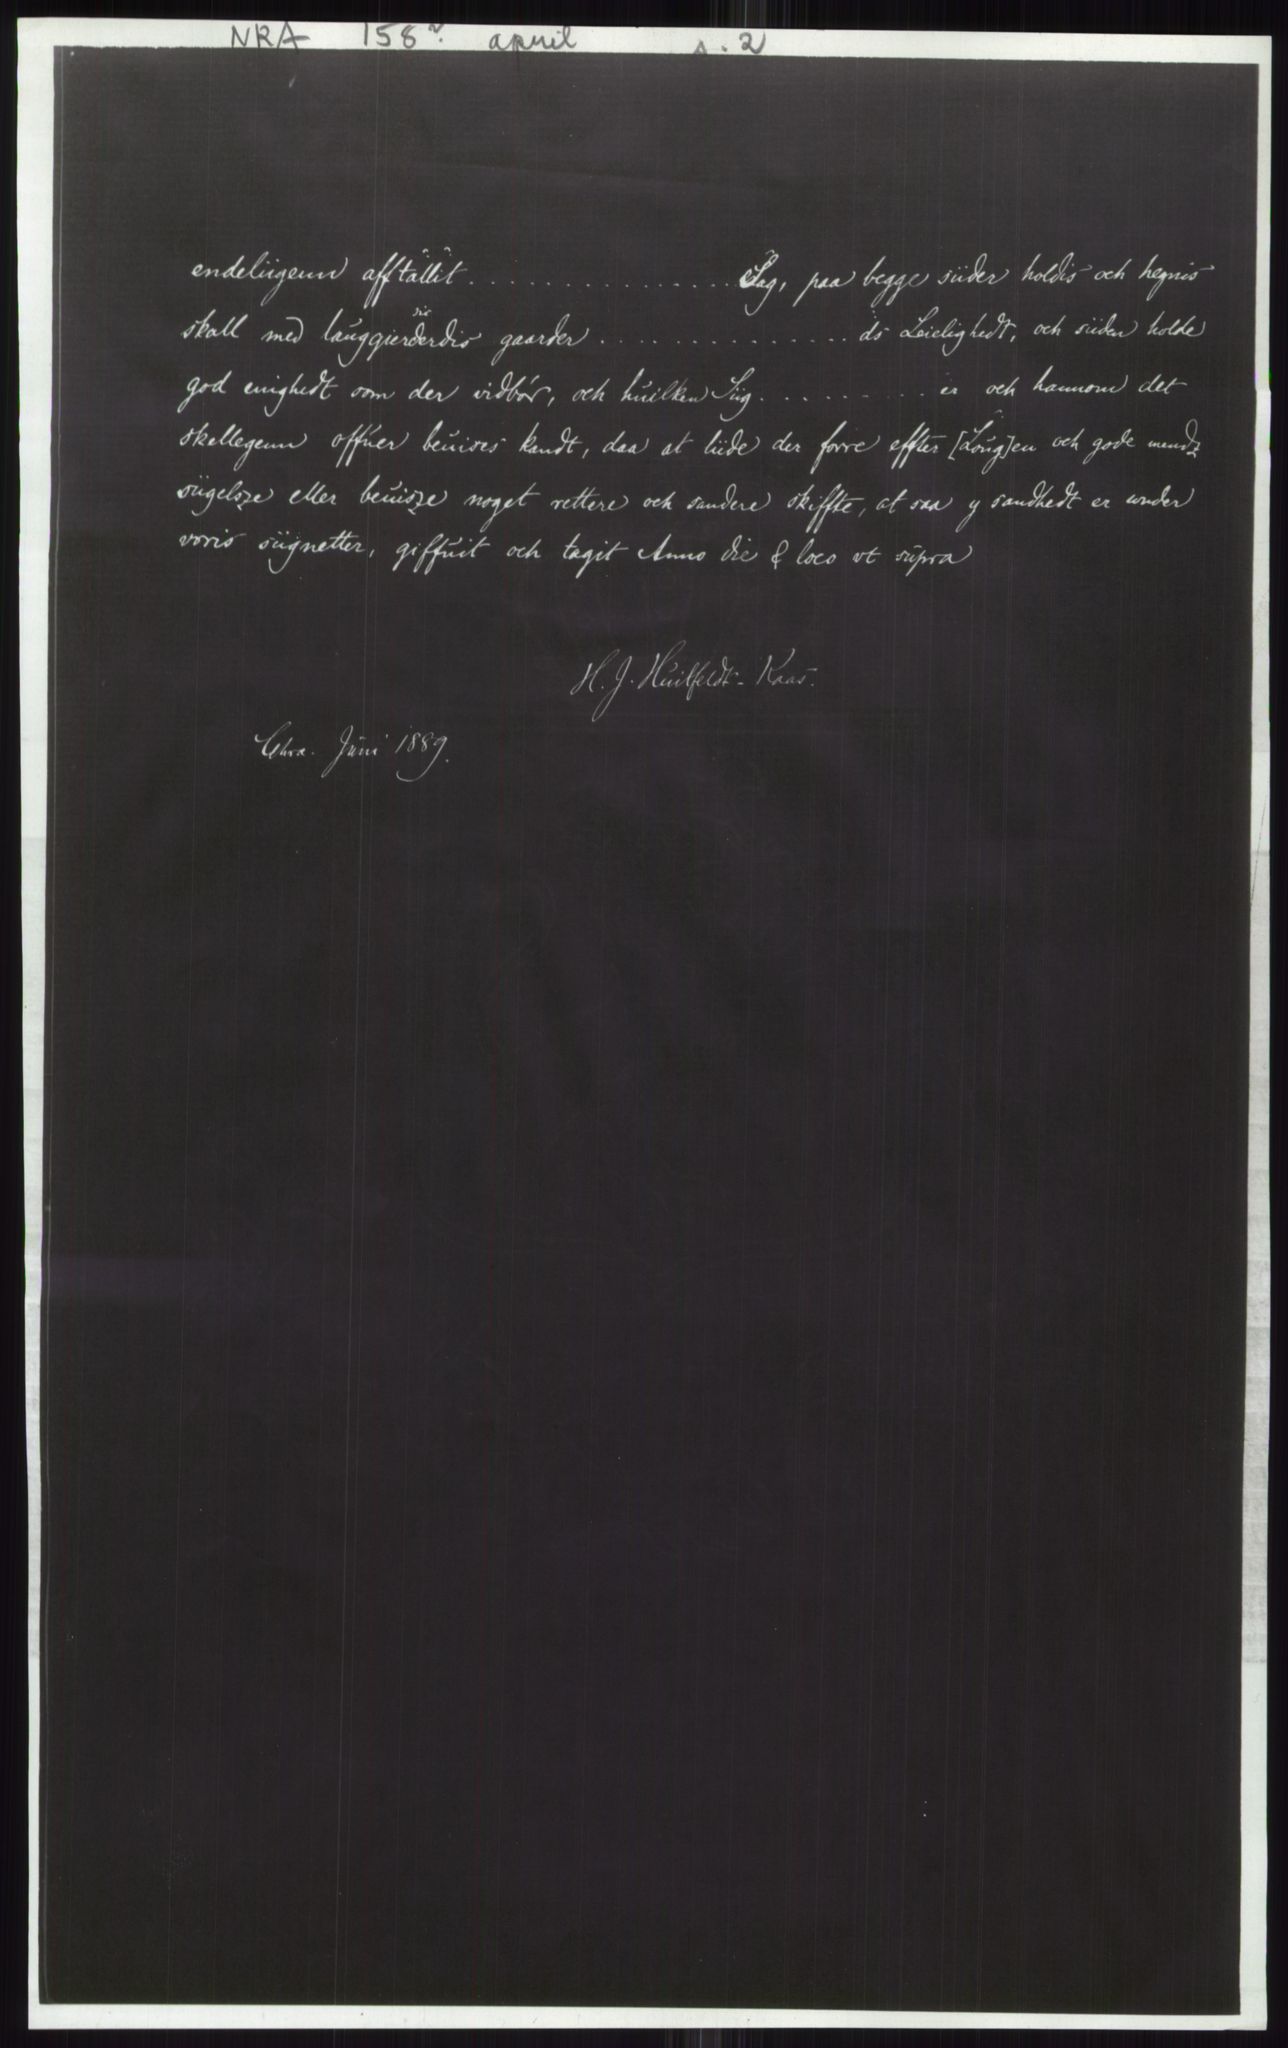 NRA 158? april s. 2
endeliigenn afftallit . . . . . . . . . . . . . . . . Sag, paa begge siider holdis och hegnis
skall med lauggierderdis gaarder . . . . . . . . . . . . . . ds Leielighedt, och siiden holde
sic
god enighedt som der vidbór, och huilken Siig . . . . . . . . . er och hannom det
skellegenn offuer beuises kandt, daa at liide der forre effter [Loug]en och gode mendz
siigelsze eller beuisze noget rettere och sandere skiffte, at saa y sandhedt er wnder
voris siignetter, giffuit och tagit Anno die & loco vt supra
H. J. Huitfeldt-Kaas.
Chra. Juni 1889.